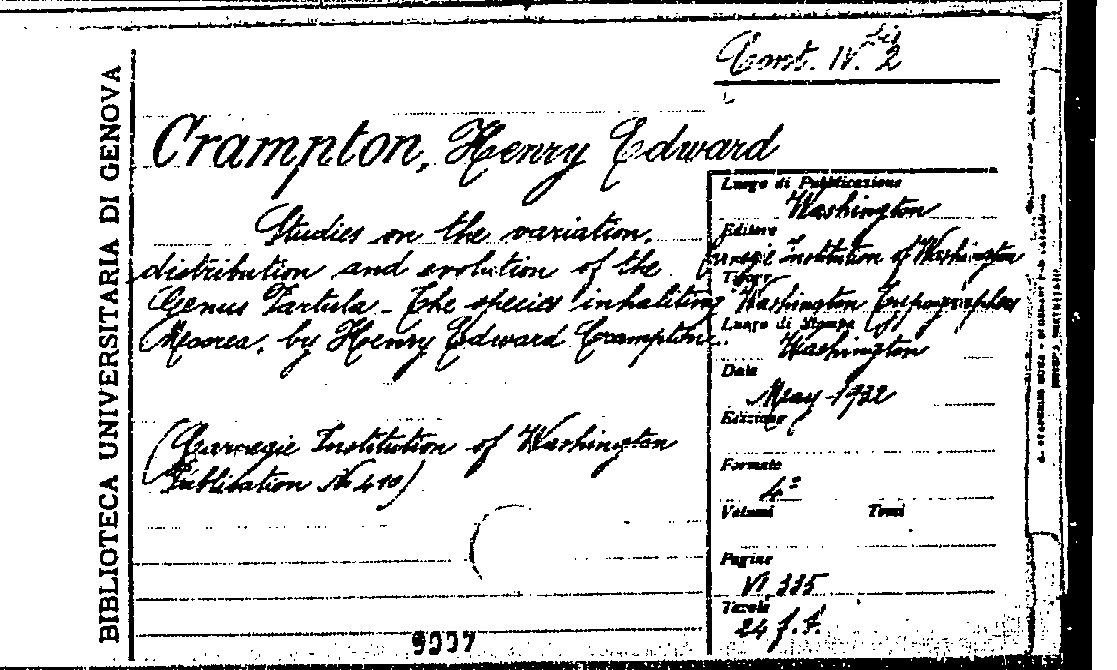 BIBLIOTECA UNIVERSITARIA DI GENOVA
Cont. IV. 2 bis
Crampton, Henry Edward
Studies on the variation,
distribution and evolution of the
Genus Partula - The species inhabiting
Moorea, by Henry Edward Crampton.
(Carnegie Institution of Washington
Publication No 410)
Luogo di Pubblicazione
Washington
Editore
Carnegie Institution of Washington
Tipogr.
Washington
Luogo di Stampa
Washington
Data
May 1932
Edizione
Formato
4º
Volumi Tomi
Pagine
VI 335
Tavole
24 f.t.
9007